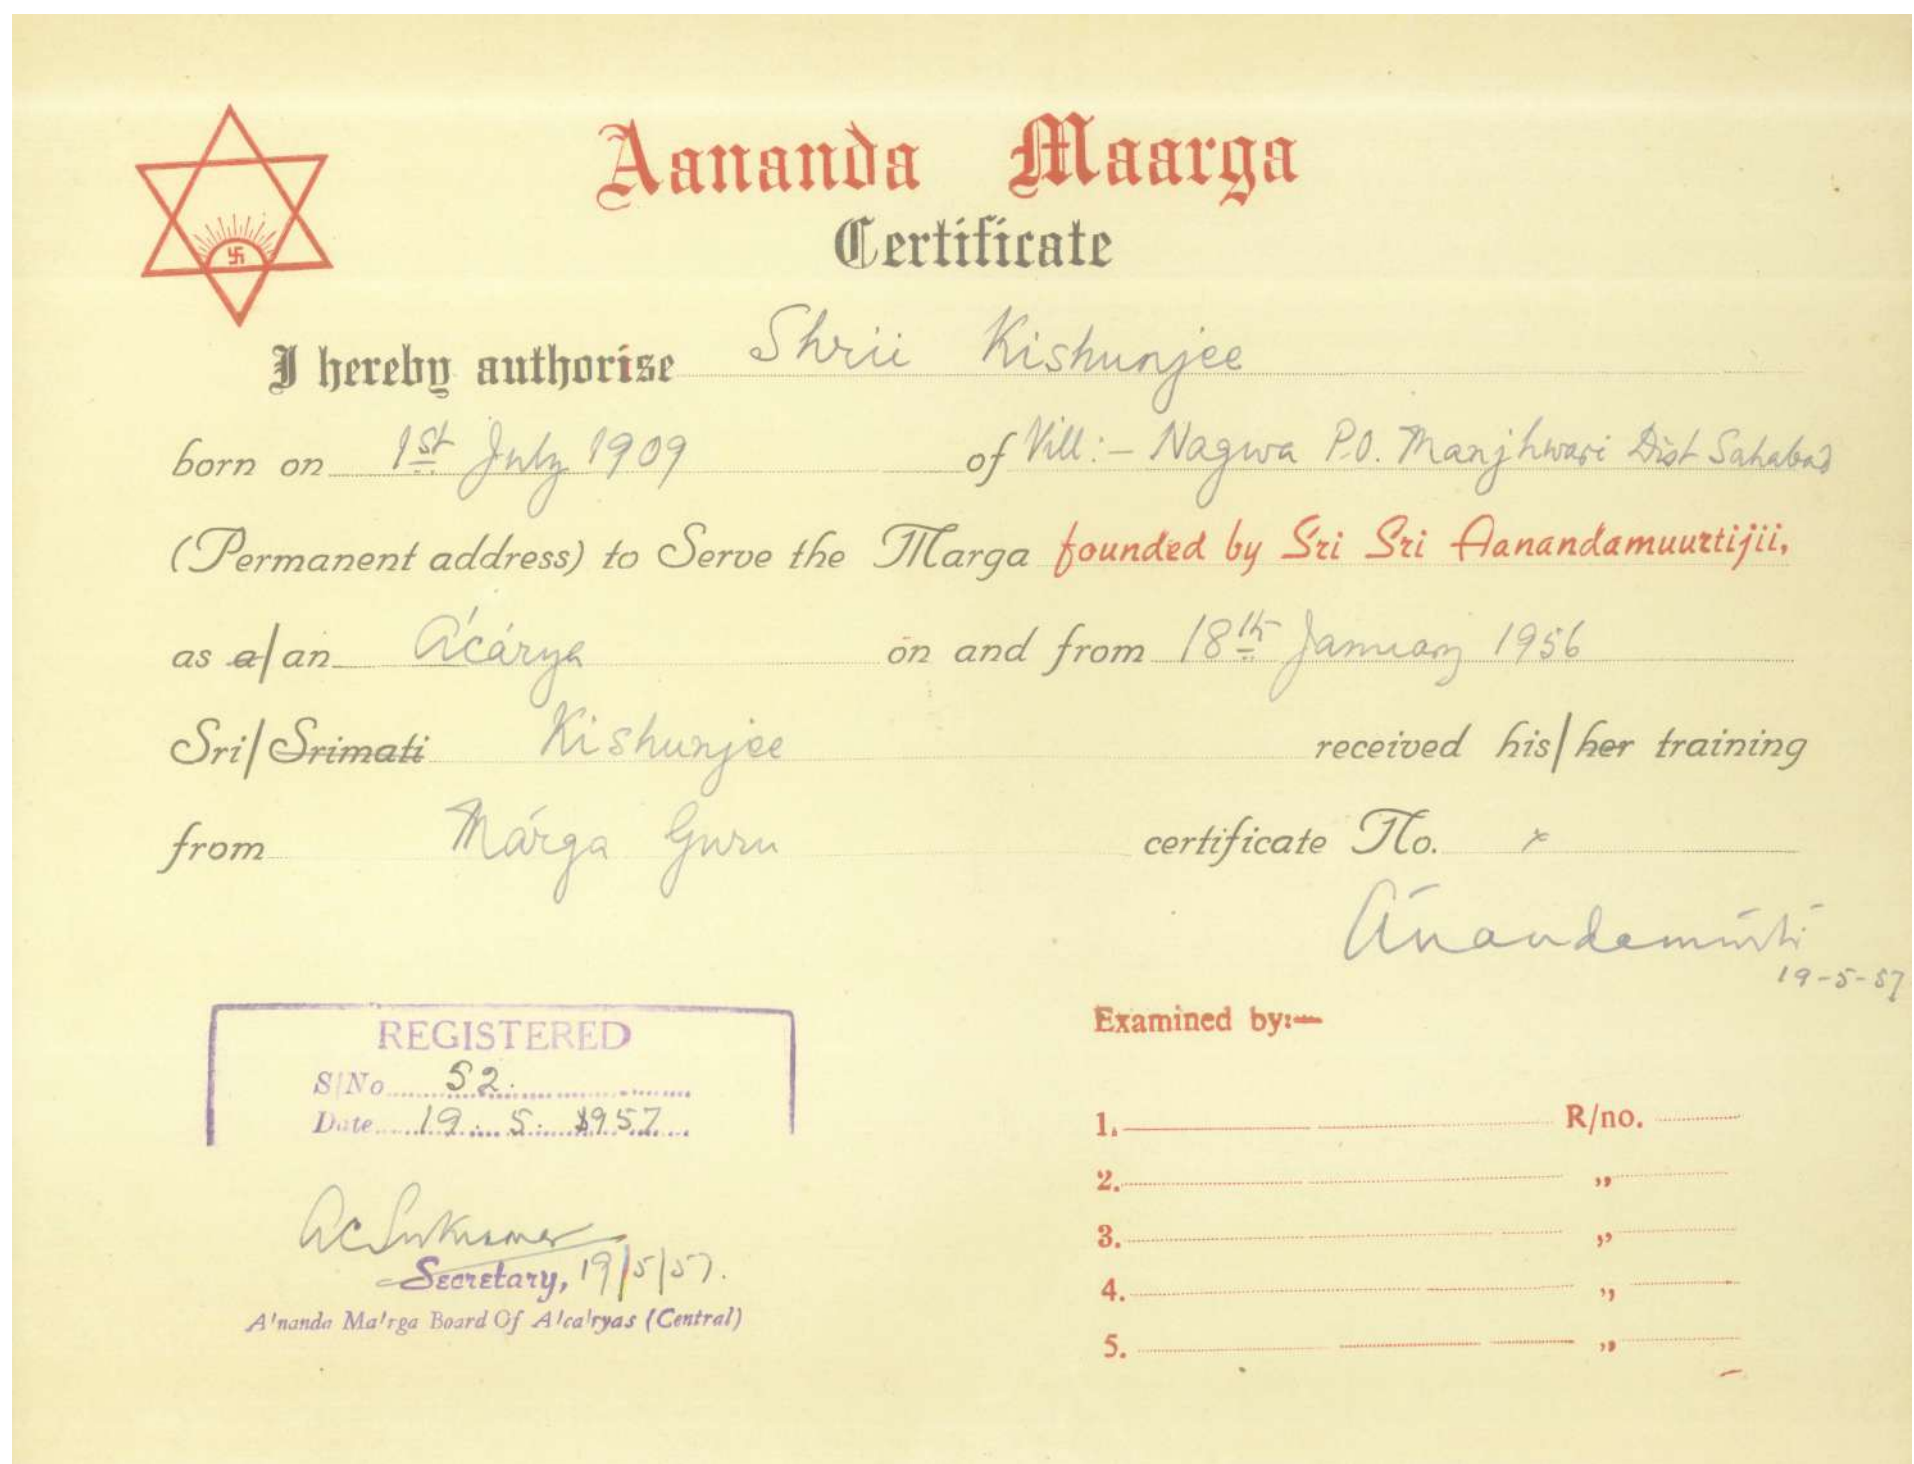 Aananda Maarga
Certificate
I hereby authorise Shrii Kishunjee
born on 1st July 1909 of Vill:- Nagwa P.O. Manjhwari Dist Sahabad
(Permanent address) to Serve the Marga founded by Sri Sri Aanandamuurtijii,
as a/an Ácárya on and from 18th January 1956
Sri/Srimati Kishunjee received his/her training
from Márga Guru certificate No. x
Ánandamúrti
19-5-57
REGISTERED
S/No 52.
Date 19. 5. 1957
Examined by:—
1. R/no.
2. ,,
3. ,,
4. ,,
5. ,,
Ac Sukumar
Secretary, 19/5/57.
A'nanda Ma'rga Board Of A'ca'ryas (Central)